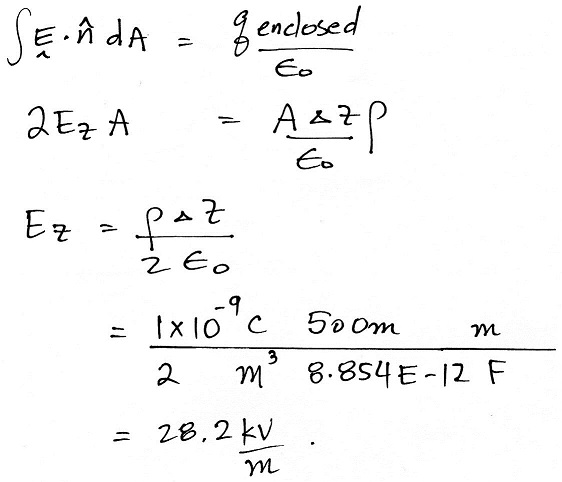 ∫E · n̂ dA = q enclosed / ϵ₀
2E_z A = A Δz / ϵ₀ ρ
E_z = ρ Δz / 2 ϵ₀
= 1×10⁻⁹ C 500m m / 2 m³ 8.854E-12 F
= 28.2 kV / m .